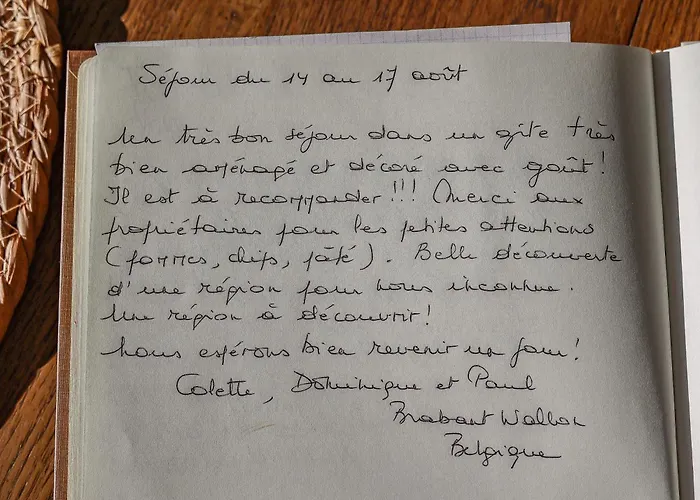 Séjour du 14 au 17 août
Un très bon séjour dans un gîte très
bien aménagé et décoré avec goût !
Il est à recommander !!! (Merci aux
propriétaires pour les petites attentions
(pommes, chips, pâté). Belle découverte
d'une région pour nous inconnue.
Une région à découvrir !
Nous espérons bien revenir un jour !
Colette, Dominique et Paul
Brabant Wallon
Belgique